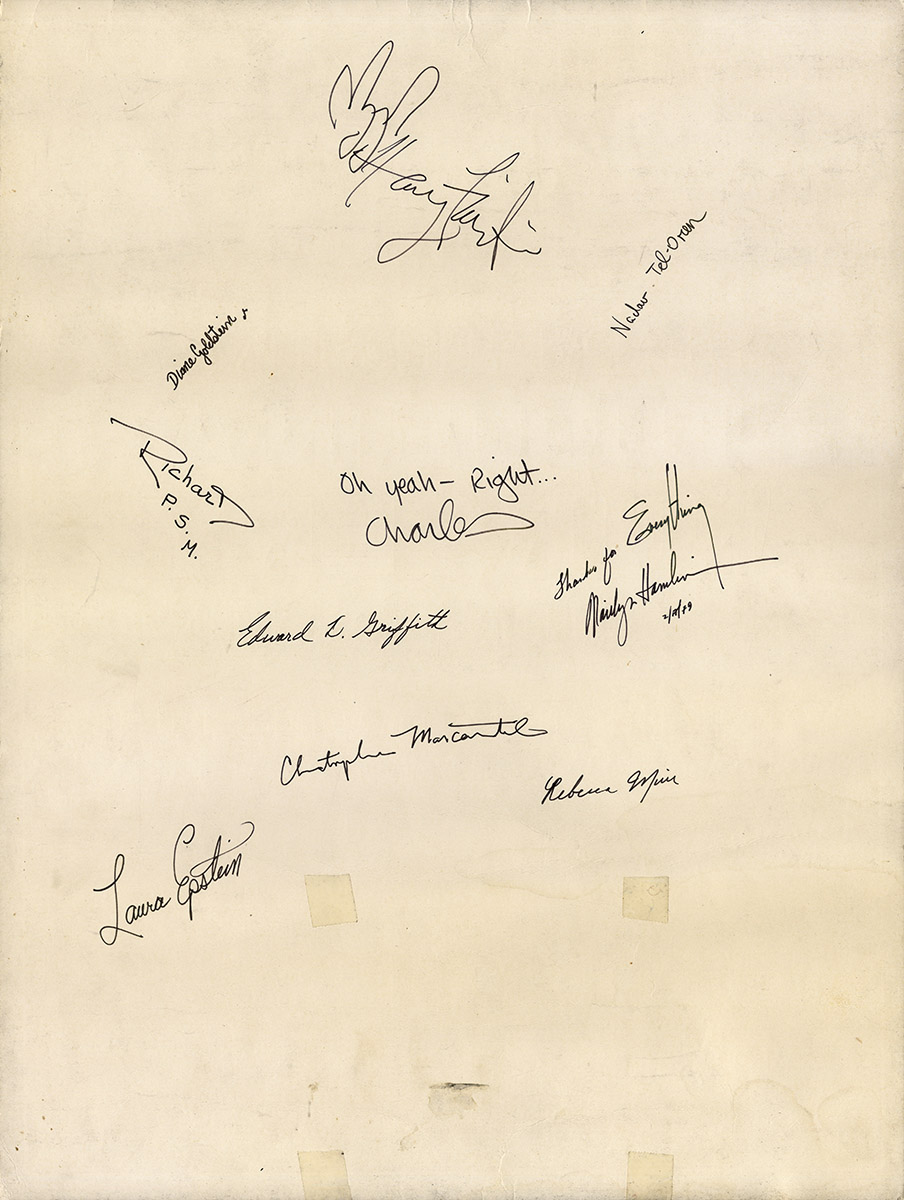 Nadav Tel-Oren
Diane Goldstein
Richart
P. S. M.
Oh yeah - Right...
Charles
Thanks for Everything
Marilyn Hamlin
Edward L. Griffith
Christopher Marcantel
Rebecca Muir
Laura Epstein